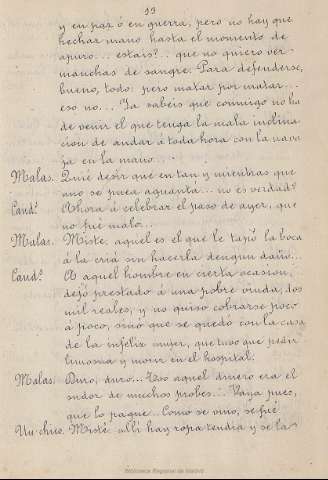 19
y en paz ó en guerra, pero no hay que
hechar mano hasta el momento de
apuro... estais?... que no quiero ver
manchas de sangre. Para defenderse,
bueno, todo: pero matar por matar...
eso no... Ya sabeis que conmigo no ha
de venir el que tenga la mala inclina-
cion de andar á toda hora con la nava
ja en la mano.
Malas. Quié desir que en tan y mientras que
uno se puea aguanta... no es verdad?
Cand.º Ahora á celebrar el paso de ayer, que
no fué malo...
Malas. Miste, aquel es el que le tapó la boca
á la criá sin hacerla dengun daño...
Cand.º A aquel hombre en cierta ocasion,
dejó prestado á una pobre viuda, dos
mil reales, y no quiso cobrarse poco
á poco, sinó que se quedó con la casa
de la infeliz muger, que tuvo que pedir
limosna y morir en el hospital.
Malas. Duro, duro... Too aquel dinero era el
sudor de muchos probes... Vaya pues,
que lo pague... Como se vino, se fué
Un chico. Misté alli hay ropa tendia y se la
Biblioteca Regional de Madrid